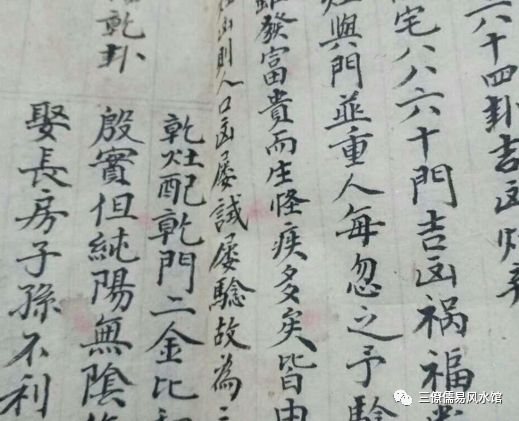 六十四卦吉凶
宅八八六十門吉凶禍福
灶與門並重人每忽之予驗
發富貴而生怪疾多矣皆由
則人口凶屡試屡驗故為
乾灶配乾門二金比和
殷實但純陽無陰
娶長房子孫不利
乾卦
三僚儒易风水馆